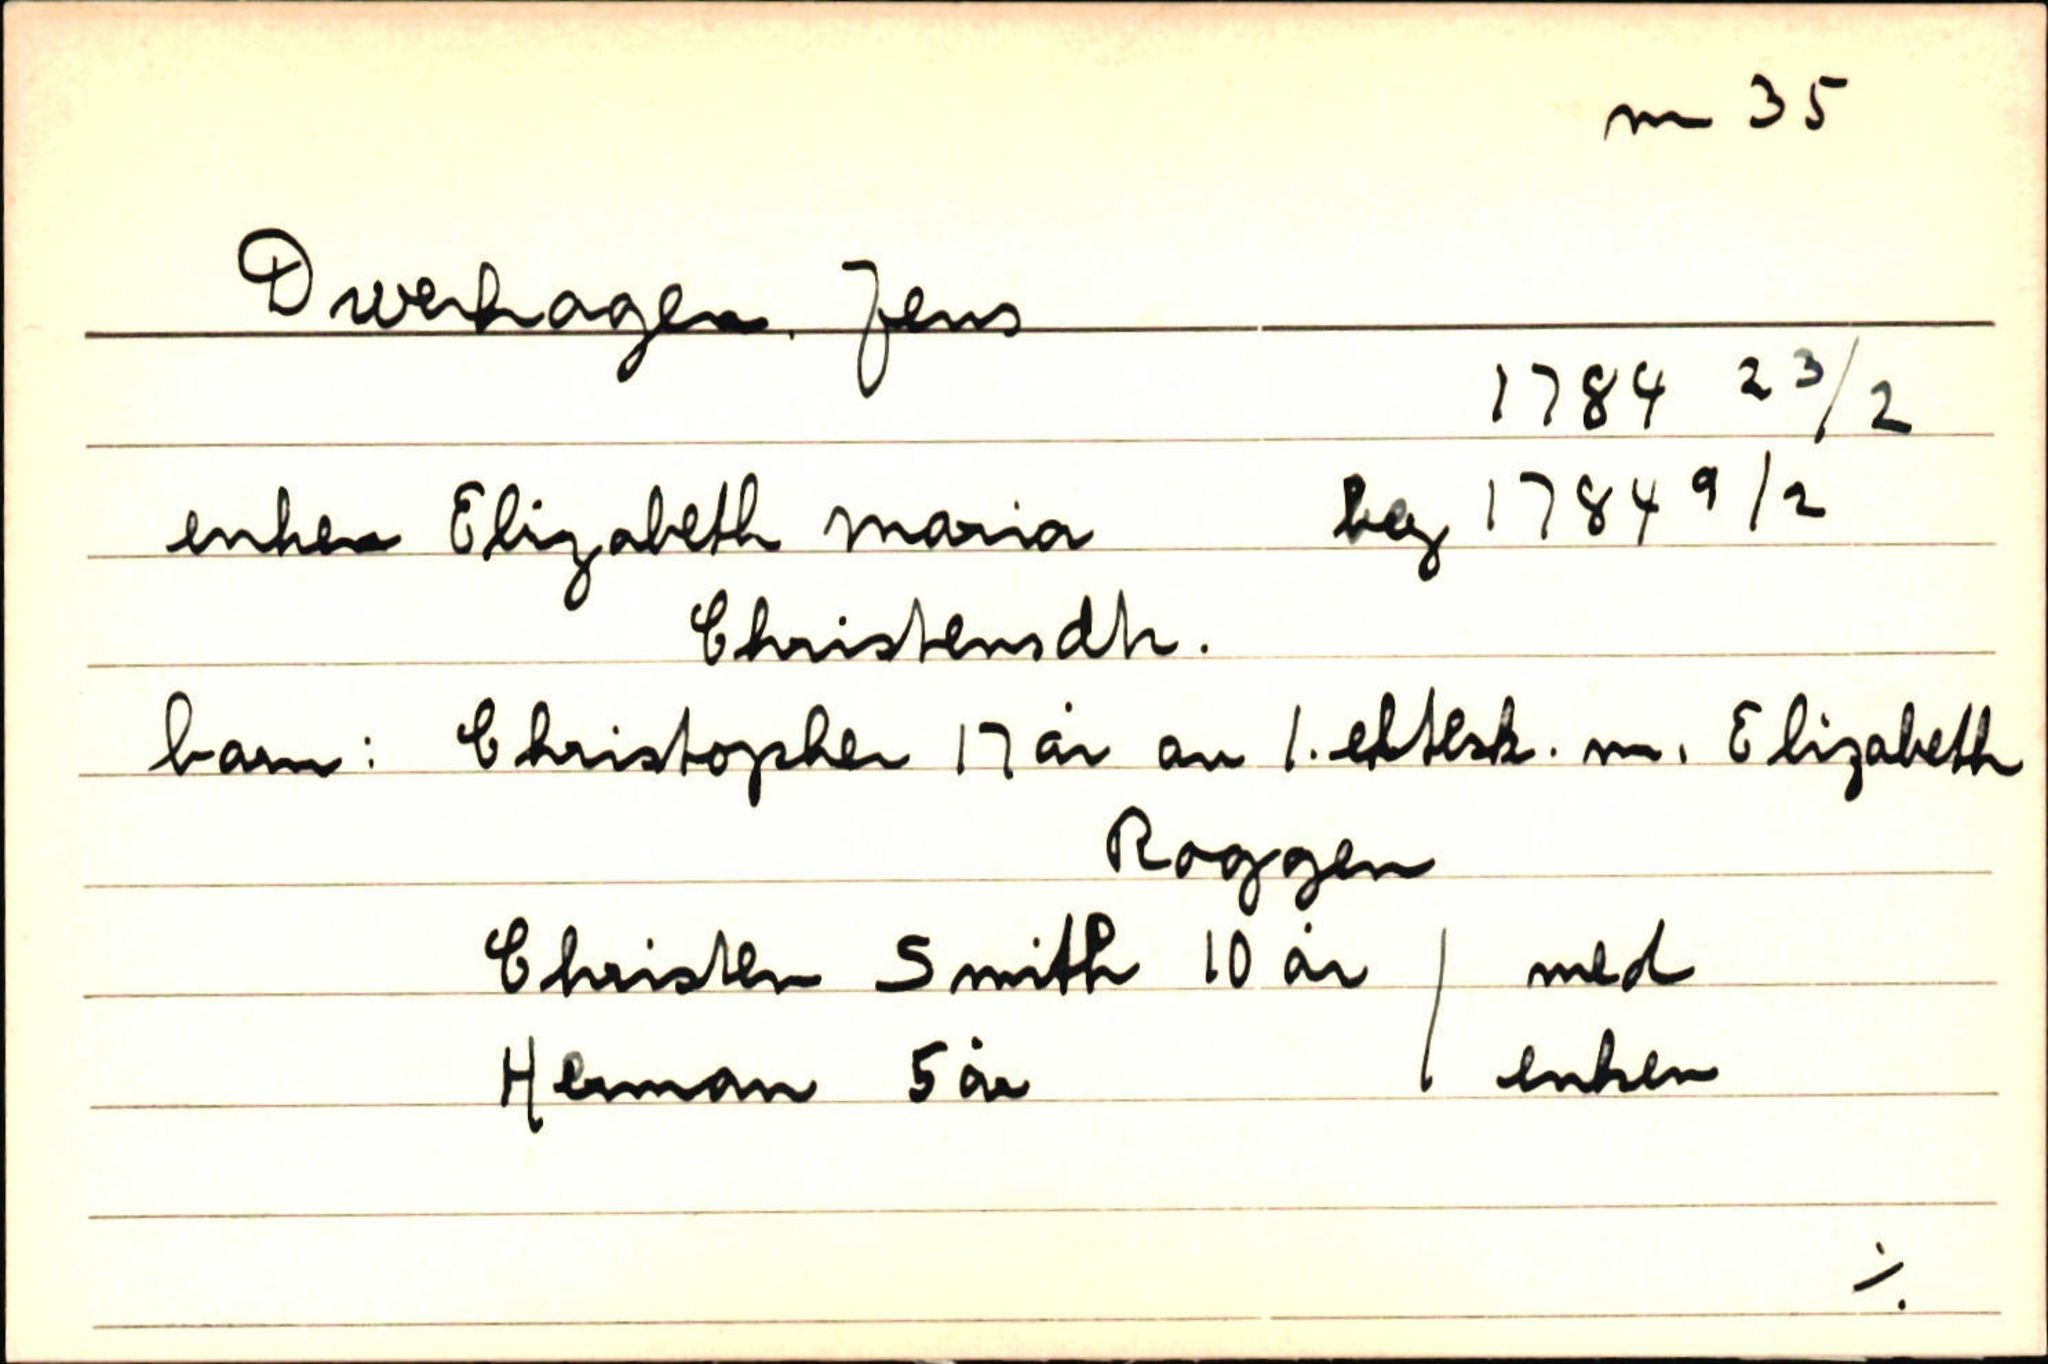 m 35
Dwerhagen, Jens
1784 23/2
enken Elizabeth Maria beg 1784 9/2
Christensdtr.
barn: Christopher 17 år av 1. ektesk. m. Elizabeth
Roggen
Christen Smith 10 år / med
Herman 5 år enken
./.